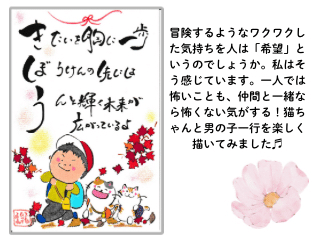 きたいを胸に一歩
ぼうけんの先には
うんと輝く未来が
広がっているよ
冒険するようなワクワクし
た気持ちを人は「希望」と
いうのでしょうか。私はそ
う感じています。一人では
怖いことも、仲間と一緒な
ら怖くない気がする！猫ち
ゃんと男の子一行を楽しく
描いてみました♬